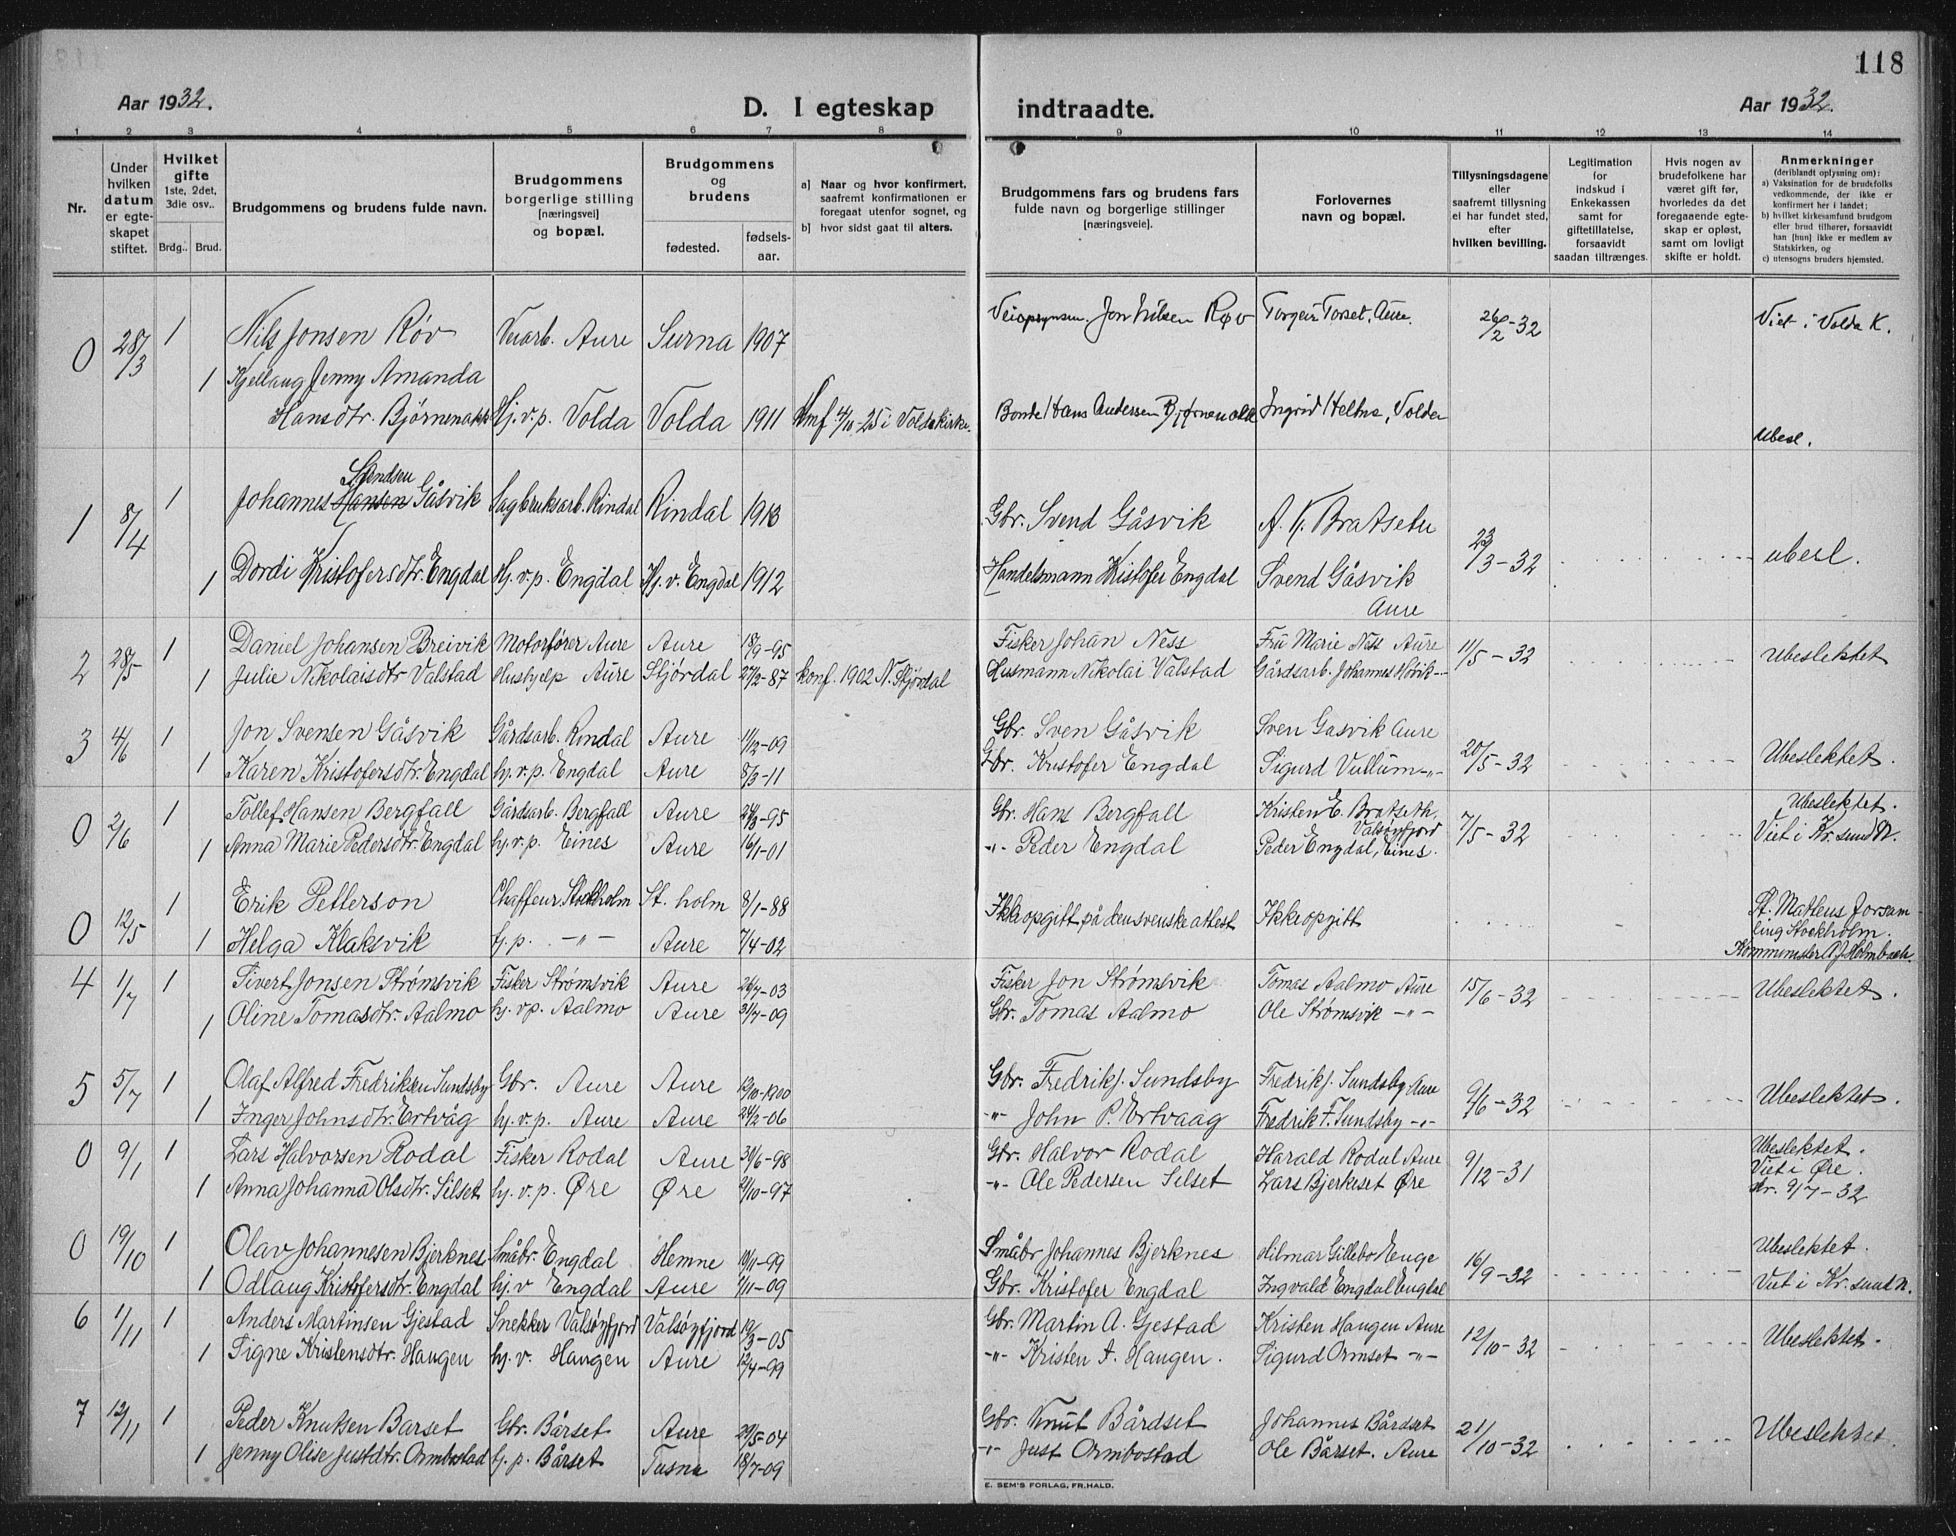 118
Aar 1932.
D. I egteskap indtraadte.
Aar 1932.
1 2 3 4 5 6 7 8 9 10 11 12 13 14
Nr.
Under hvilken datum er egteskapet stiftet.
Hvilket gifte 1ste, 2det, 3die osv..
Brdg.. Brud.
Brudgommens og brudens fulde navn.
Brudgommens borgerlige stilling [næringsvei] og bopæl.
Brudgommens og brudens
fødested.
fødsels-aar.
a] Naar og hvor konfirmert, saafremt konfirmationen er foregaat utenfor sognet, og
b] hvor sidst gaat til alters.
Brudgommens fars og brudens fars fulde navn og borgerlige stillinger [næringsveie].
Forlovernes navn og bopæl.
Tillysningsdagene eller saafremt tillysning ei har fundet sted, efter hvilken bevilling.
Legitimation for indskud i Enkekassen samt for giftetillatelse, forsaavidt saadan tiltrænges.
Hvis nogen av brudefolkene har været gift før, hvorledes da det foregaaende egteskap er opløst, samt om lovligt skifte er holdt.
Anmerkninger (deriblandt oplysning om):
a) Vaksination for de brudefolks vedkommende, der ikke er konfirmert her i landet;
b) hvilket kirkesamfund brudgom eller brud tilhører, forsaavidt han [hun] ikke er medlem av Statskirken, og
c) utensogns bruders hjemsted.
0 28/3 1 Nils Jonsen Røv Veiarb. Aure Surna 1907 Veiopsynsm. Jon Nilsen Røv Torgeir Torset, Aure. 26/2-32 Viet i Volda K.
1 Kjellaug Jenny Amanda
Hansdtr. Bjørnenakk Hj.v.p. Volda Volda 1911 Kmf 4/10-25 i Voldakirke. Bonde Hans Andersen Bjørnenakk Ingrid Heltne, Volda
Ubesl.
Svendsen
1 8/4 1 Johannes Hansen Gåsvik Sagbruksarb. Rindal Rindal 1913 Gbr. Svend Gåsvik A. K. Bratseter 23/3-32 ubesl.
1 Dordi Kristofersdtr. Engdal Hj.v.p. Engdal Hj.v. Engdal 1912 Handelsmann Kristofer Engdal Svend Gåsvik
Aure
2 28/5 1 Daniel Johansen Breivik Motorfører Aure Aure 18/9-95 Fisker Johan Ness Fru Marie Ness Aure 11/5-32 Ubeslektet
1 Julie Nikolaisdtr Valstad Hushjelp Aure Stjørdal 27/2-87 konf. 1902 N. Stjørdal Husmann Nikolai Valstad Gårdsarb. Johannes Hövik -"-
3 4/6 1 Jon Svensen Gåsvik Gårdsarb. Rindal Aure 11/2-09 Gbr. Sven Gåsvik Sven Gasvik Aure 20/5-32 Ubeslektet.
1 Karen Kristofersdtr. Engdal hj.v.p. Engdal Aure 8/3-11 Gbr. Kristofer Engdal Sigurd Vullum -"-
0 2/6 1 Tollef Hansen Bergfall Gårdsarb. Bergfall Aure 24/3-95 Gbr. Hans Bergfall Kristen E. Bratseth, Valsøyfjord 7/5-32 Ubeslektet.
1 Anna Marie Pedersdtr. Engdal hj.v.p. Eines Aure 16/1-01 -"- Peder Engdal Peder Engdal, Eines. Viet i Kr.sund N.
0 12/5 1 Erik Petterson Chaffeur Stockholm St. holm 8/1-88 Ikke opgitt på den svenske attest Ikke opgitt St. Matteus Forsam-
ling Stockholm.
1 Helga Klaksvik hj.p. -"- Aure 7/4-02 Komminister A. J. Holmbäck.
4 1/7 1 Sivert Jonsen Strømsvik Fisker Strømsvik Aure 26/7-03 Fisker Jon Strømsvik Tomas Aalmo Aure 15/6-32 Ubeslektet.
1 Oline Tomasdtr. Aalmo hj.v.p. Aalmo Aure 31/7-09 Gbr. Tomas Aalmo Ole Strømsvik -"-
5 5/7 1 Olaf Alfred Fredriksen Sundsby Gbr. Aure Aure 12/10-1900 Gbr. Fredrik J. Sundsby Fredrik J. Sundsby Aure 9/6-32 Ubeslektet.
1 Inger Johnsdtr. Ertvåg hj.v.p. Aure Aure 24/2-06 -"- John P. Ertvaag Fredrik F. Sundsby -"-
0 9/1 1 Lars Halvorsen Rodal Fisker Rodal Aure 30/6-98 Gbr. Halvor Rodal Harald Rodal Aure 9/12-31 Ubeslektet.
Viet i Øre.
1 Anna Johanna Olsdtr. Silset hj.v.p. Øre Øre 2/10-97 -"- Ole Pedersen Silset Lars Bjerkeset Øre kr. 9/7-32
0 19/10 1 Olav Johannesen Bjerknes Småbr. Engdal Hemne 10/11-99 Småbr Johannes Bjerknes Hilmar Gillebo Enge 16/9-32 Ubeslektet.
1 Odlaug Kristofersdtr. Engdal hj.v Engdal Aure 7/11-09 Gbr. Kristofer Engdal Ingvald Engdal Engdal Viet i Kr.sund N.
6 1/11 1 Anders Martinsen Gjestad Snekker Valsøyfjord Valsøyfjord 19/3-05 Gbr. Martin A. Gjestad Kristen Haugen Aure 12/10-32 Ubeslektet.
1 Signe Kristensdtr. Haugen hj.v. Haugen Aure 12/4-99 -"- Kristen A. Haugen. Sigurd Ormset -"-
7 12/11 1 Peder Knutsen Barset Gbr. Bårset Aure 29/5-04 Gbr. Knut Bårdset Johannes Bårdset 21/10-32 Ubeslektet.
1 Jenny Olise Justdtr. Ormbostad hj.p. Bårset Tusna 18/7-09 -"- Just Ormbostad Ole Bårset. Aure
E. SEM'S FORLAG, FR.HALD.